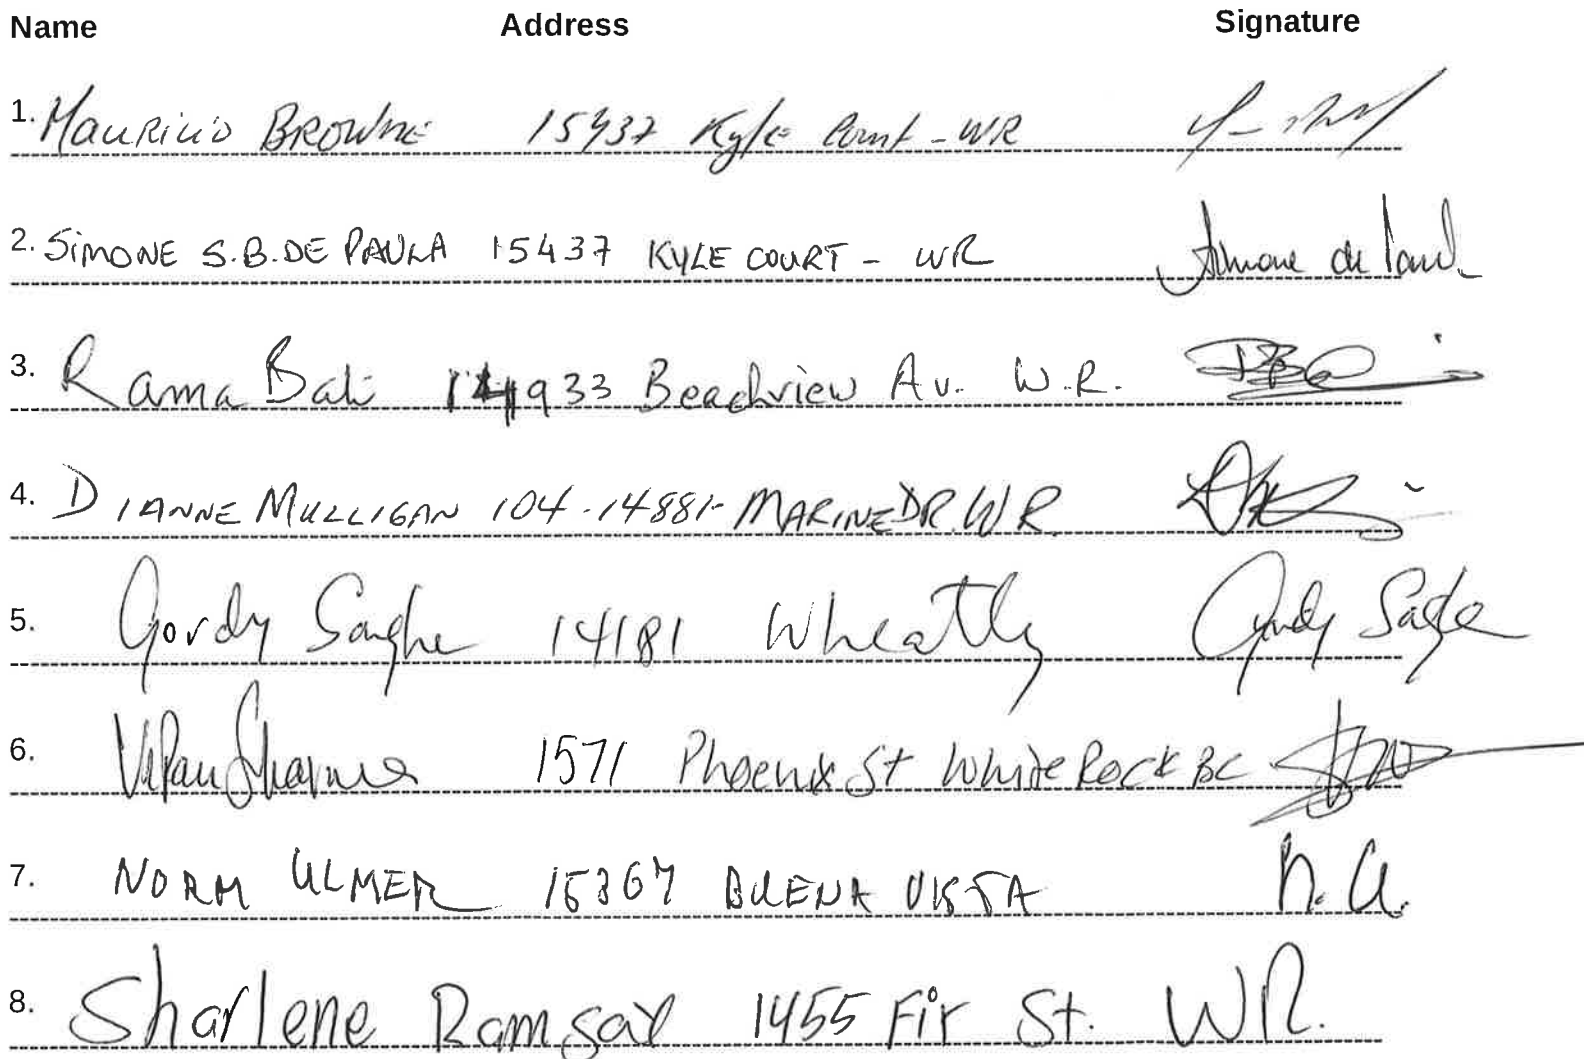 Name Address Signature
1. Mauricio Browne 15437 Kyle Court - WR
2. Simone S.B. DE PAULA 15437 KYLE COURT - WR Simone de Paul
3. Rama Bali 14933 Beachview Av. W.R.
4. DIANNE MULLIGAN 104-14881- MARINE DR WR
5. Gordy Sanghe 14181 Wheatly
6. Vipan Sharma 1571 Phoenix St White Rock BC
7. NORM ULMER 15367 BUENA VISTA N. U.
8. Sharlene Ramsay 1455 Fir St. WR.